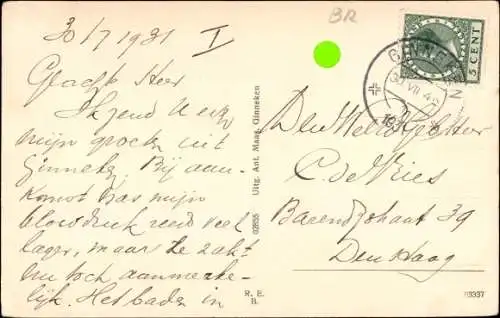 BR
30/7 1931 I
Geachte Heer
Ik zend U even
mijn groeten uit
Ginneken. Bij aan-
komst was mijn
bloeddruk reeds veel
lager, maar ze zakt
nu toch aanmerke-
lijk. Het baden in
Uitg. Ant. Maas, Ginneken
02855
R. E.
B.
5 CENT
GINNEKEN
30 VII
193
Den WelEd. Heer
C. de Vries
Barendszstraat 39
Den Haag